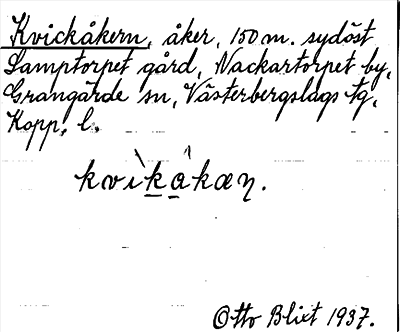 Kvickåkern, åker, 150 m. sydöst
Lamptorpet gård, Nackartorpet by,
Grangärde sn, Västerbergslags tg,
Kopp. l.
kvìkákæɳ.
Otto Blixt 1937.